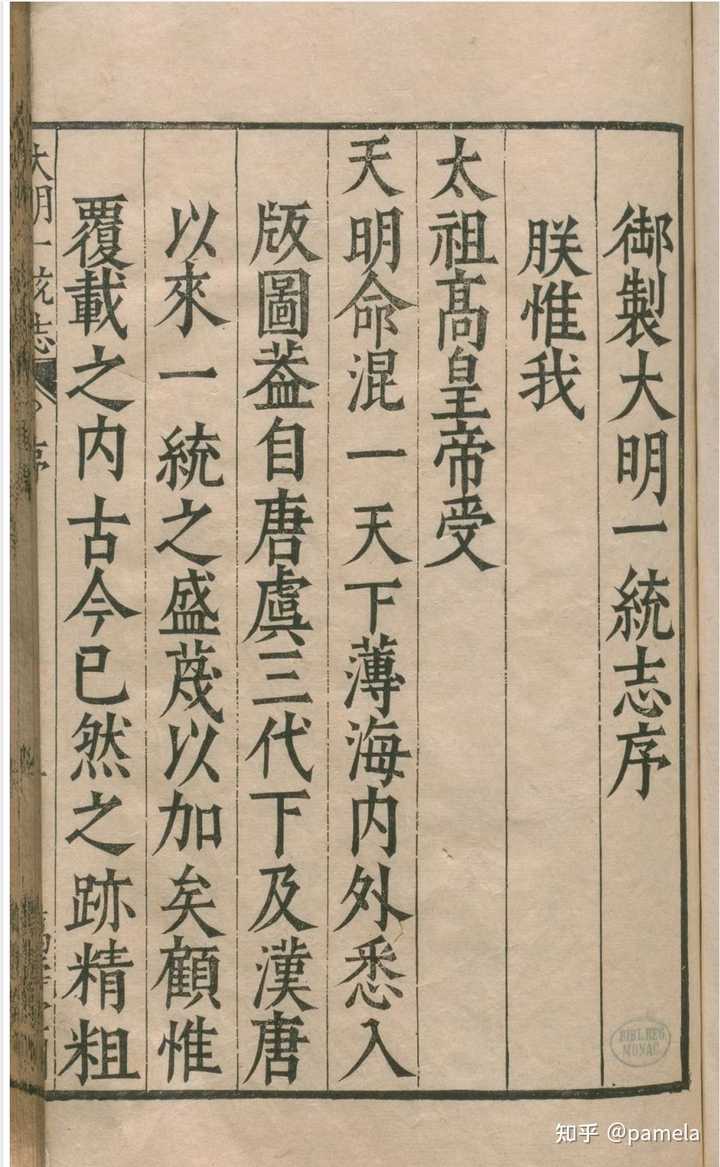 御製大明一統志序
朕惟我
太祖高皇帝受
天明命混一天下薄海内外悉入
版圖葢自唐虞三代下及漢唐
以來一統之盛蔑以加矣顧惟
覆載之内古今已然之跡精粗
大明一统志
序
BIBL.REG.
MONAC.
知乎 @pamela